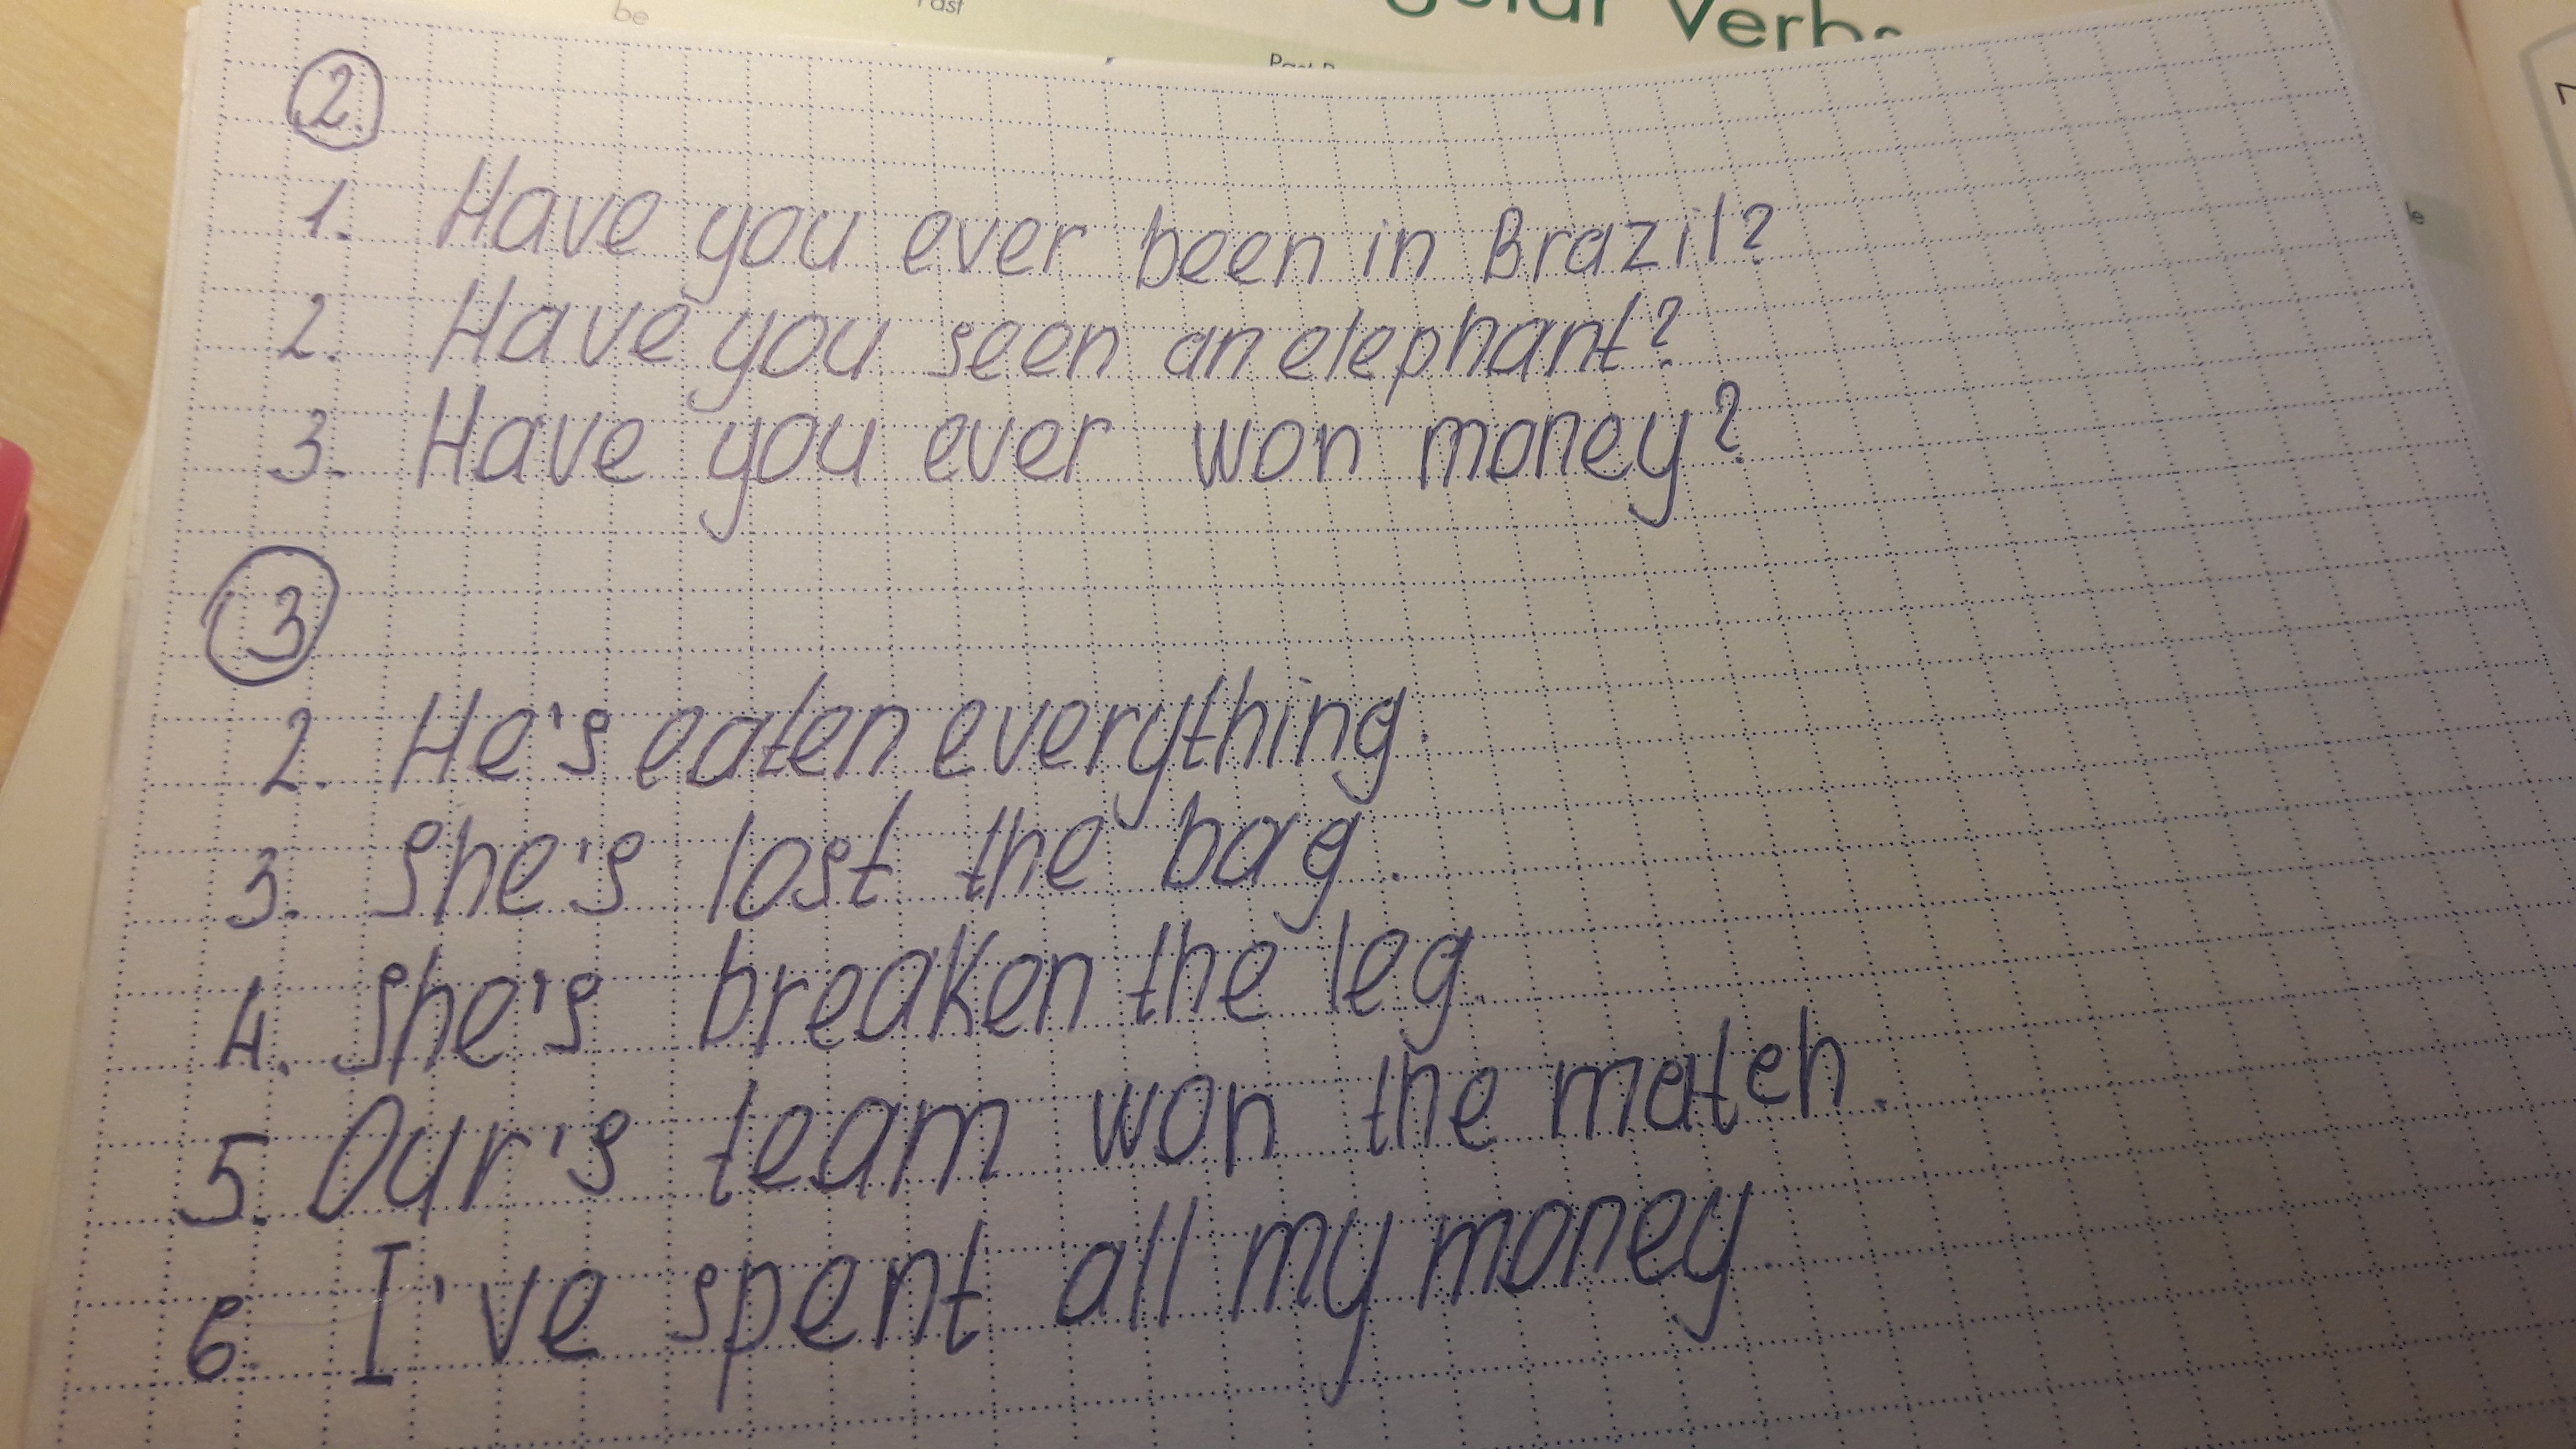 be
Past
Verbs
②
1. Have you ever been in Brazil?
2. Have you seen an elephant?
3. Have you ever won money?
③
2. He's eaten everything.
3. She's lost the bag.
4. She's breaken the leg.
5. Our's team won the match.
6. I've spent all my money